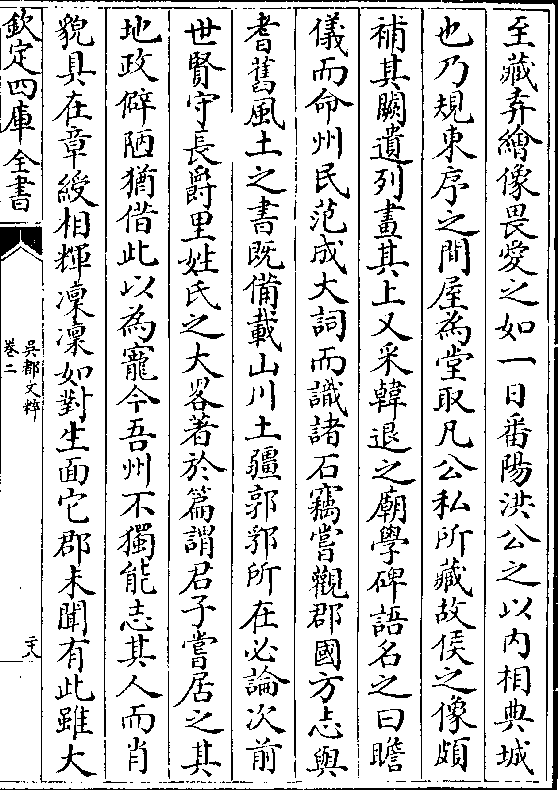 至藏弆繪像畏愛之如一日番陽洪公之以内相典城
也乃規東序之間屋為堂取凡公私所藏故侯之像頗
補其闕遺列畫其上又采韓退之廟學碑語名之曰瞻
儀而命州民范成大詞而識諸石竊嘗觀郡國方志與
耆舊風土之書既備載山川土疆郭郛所在必論次前
世賢守長爵里姓氏之大畧著於篇謂君子嘗居之其
地政僻陋猶借此以為寵今吾州不獨能志其人而肖
貌具在章綬相輝凜凜如對生面它郡未聞有此雖大
欽定四庫全書
吳都文粹
卷二
二八